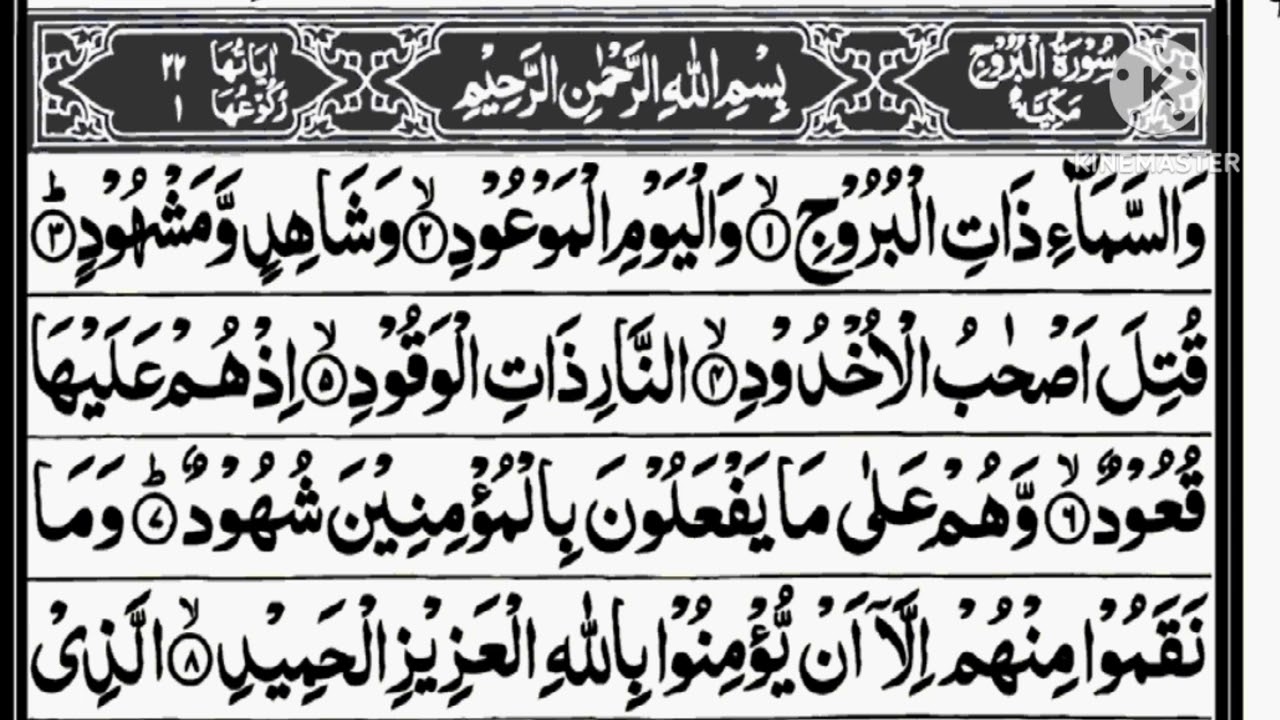 سُوْرَةُ الْبُرُوْجِ مَكِّيَّةٌ
بِسْمِ اللهِ الرَّحْمٰنِ الرَّحِيْمِ
اٰيَاتُهَا ٢٢
رُكُوْعُهَا ١
KINEMASTER
وَالسَّمَآءِ ذَاتِ الْبُرُوْجِۙ ۝١ وَالْيَوْمِ الْمَوْعُوْدِۙ ۝٢ وَشَاهِدٍ وَّمَشْهُوْدٍؕ ۝٣
قُتِلَ اَصْحٰبُ الْاُخْدُوْدِۙ ۝۴ النَّارِ ذَاتِ الْوَقُوْدِۙ ۝۵ اِذْ هُمْ عَلَيْهَا
قُعُوْدٌۙ ۝۶ وَّهُمْ عَلٰى مَا يَفْعَلُوْنَ بِالْمُؤْمِنِيْنَ شُهُوْدٌؕ ۝۷ وَمَا
نَقَمُوْا مِنْهُمْ اِلَّاۤ اَنْ يُّؤْمِنُوْا بِاللهِ الْعَزِيْزِ الْحَمِيْدِۙ ۝۸ الَّذِىْ